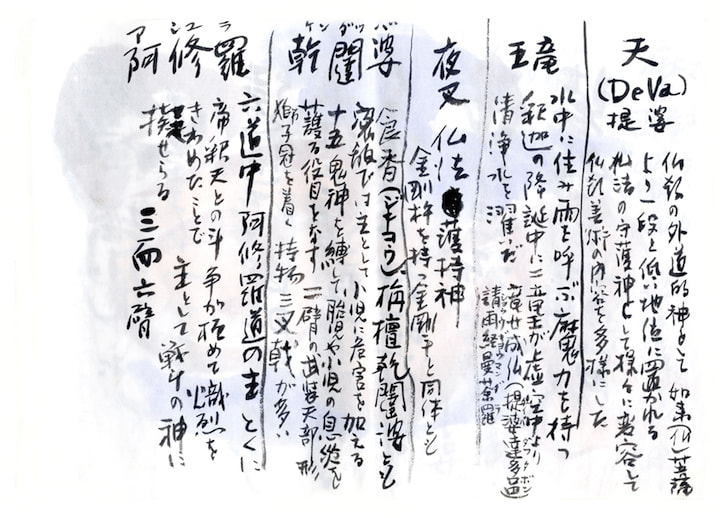 天
(DeVa)
提婆
仏教の外道的神として 如来(仏)菩薩
より一段と低い地位に置かれる
仏法の守護神として様々に変容して
仏教美術の内容を多様にした
竜
王
水中に住み雨を呼ぶ魔力を持つ
釈迦の降誕中に二竜王が虚空中より
清浄水を灌いだ
竜女成仏(提婆達多品)
ダイバダッタボン
請雨経曼荼羅
夜叉
仏法 護持神
金剛杵を持つ金剛手と同体とも
乾闥婆
ケンダッバ
食香(ジキコウ)、栴檀乾闥婆とも
密教では主として小児に危害を加える
十五鬼神を縛して胎児や小児の息災を
護る役目をなす 二臂の武装天部形
獅子冠を着く 持物 三叉戟が多い
阿修羅
アシュラ
六道中 阿修羅道の主 とくに
帝釈天との斗争が極めて熾烈を
きわめたことで 主として戦斗の神に
擬せらる 三面六臂